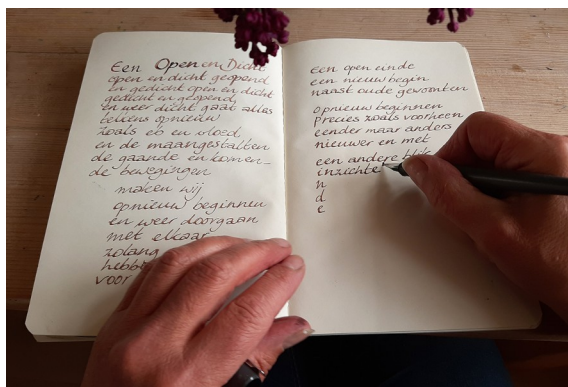 Een Open en Dicht
open en dicht geopend
en gedicht open en dicht
gedicht en geopend,
en weer dicht gaat alles
telkens opnieuw
zoals eb en vloed,
en de maangestalten
de gaande en komen-
de bewegingen
maken wij
opnieuw beginnen
en weer doorgaan
met elkaar
zolang
voor
Een open einde
een nieuw begin
naast oude gewoonten
opnieuw beginnen
precies zoals voorheen
eender maar anders
nieuwer en met
een andere
inzichte
n
d
e